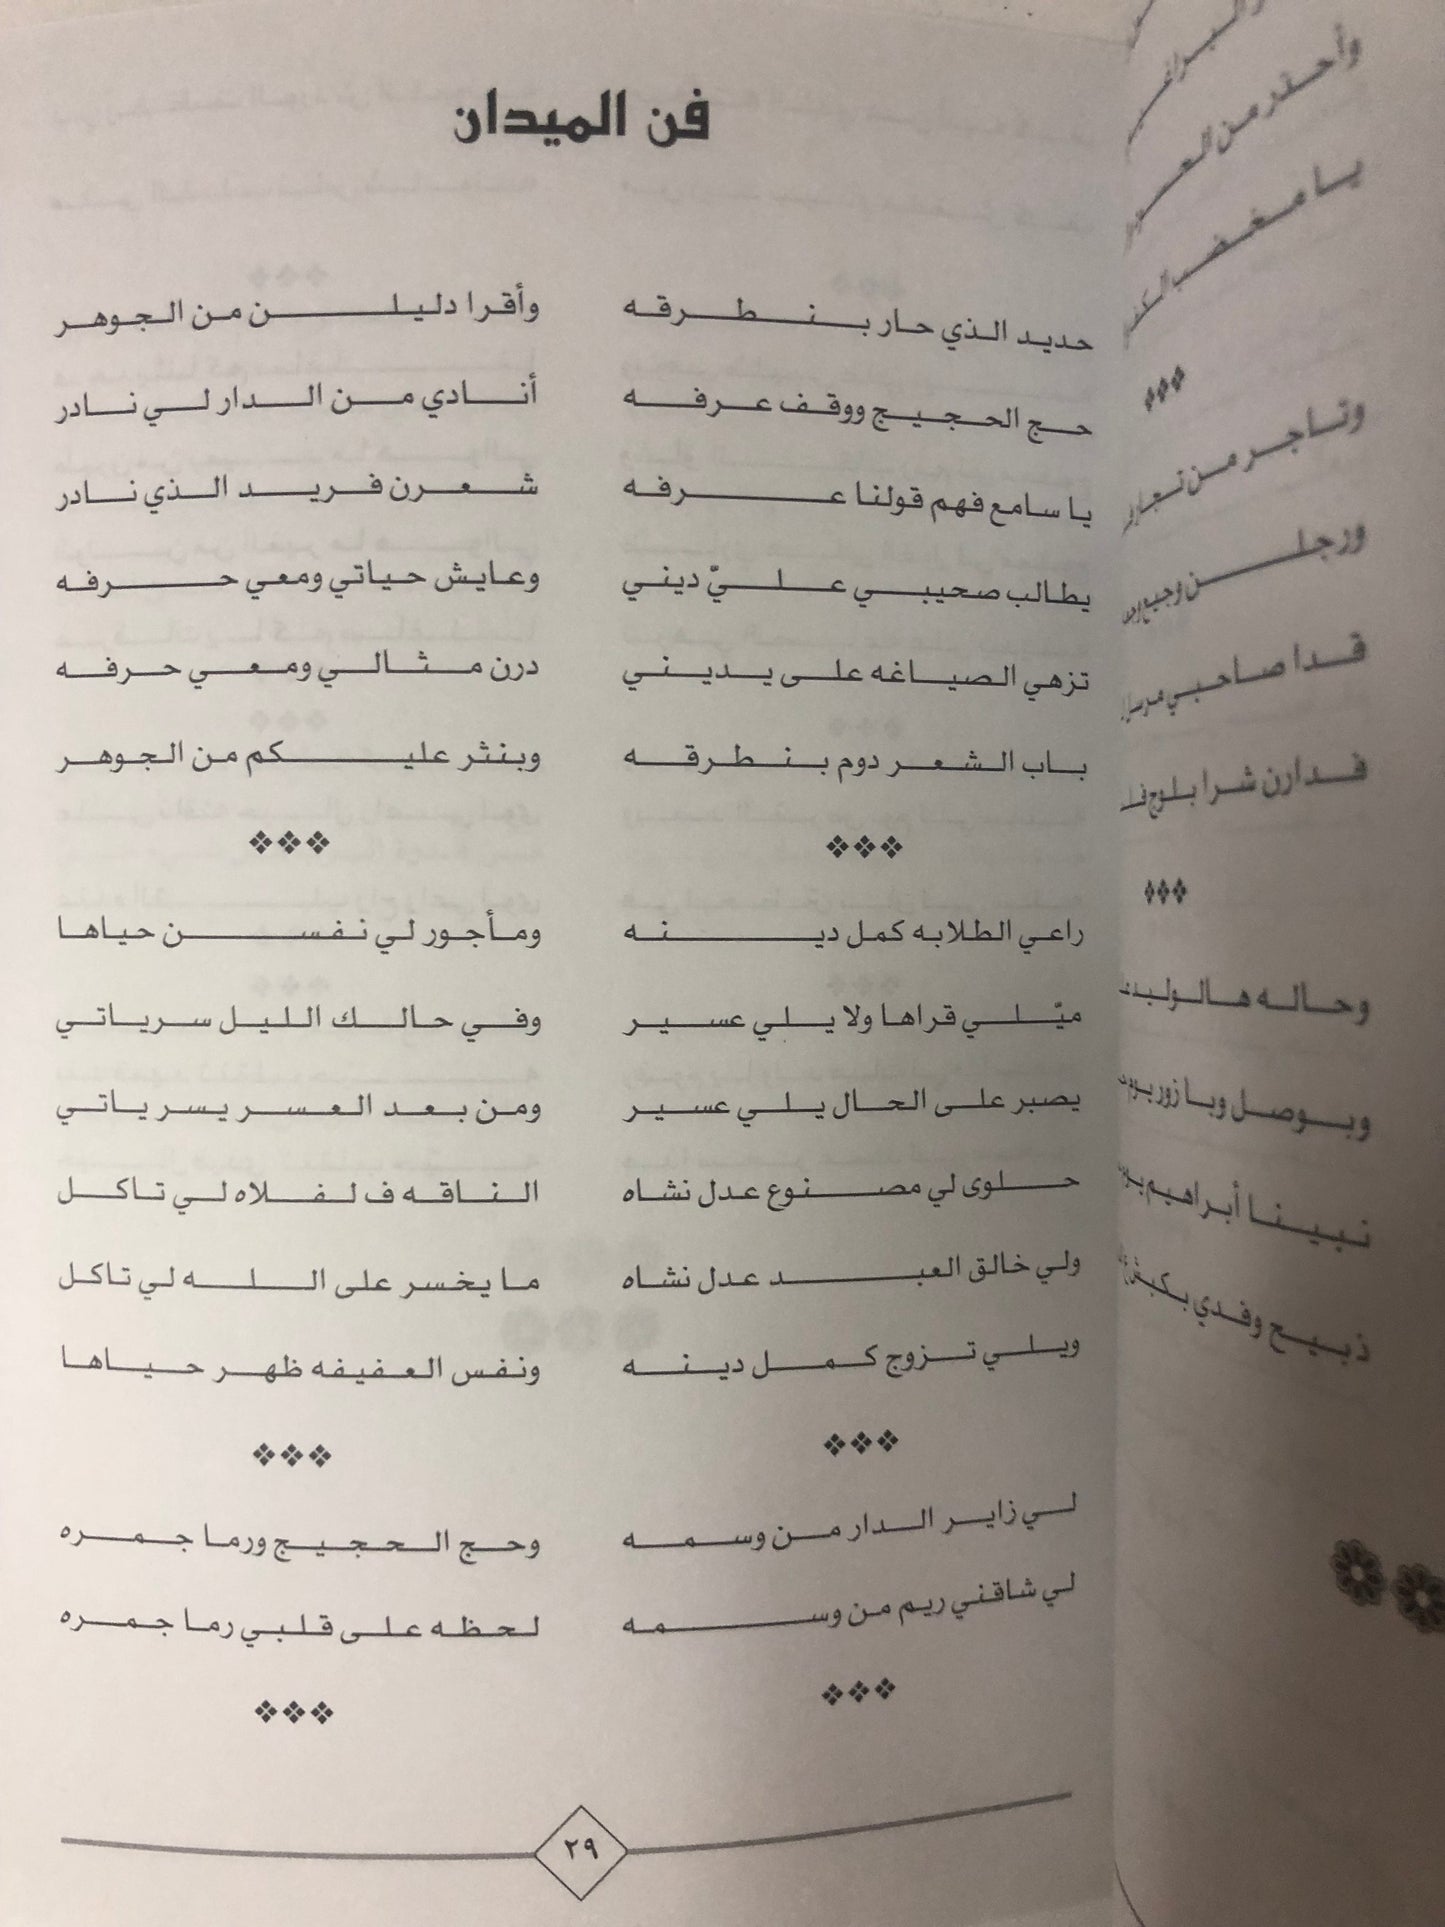 فن الميدان
حديد الذي حار بنطرقه وأقرا دليلن من الجوهر
حج الحجيج ووقف عرفه أنادي من الدار لي نادر
يا سامع فهم قولنا عرفه شعرن فريد الذي نادر
يطالب صحيبي عليّ ديني وعايش حياتي ومعي حرفه
تزهي الصياغه على يديني درن مثالي ومعي حرفه
باب الشعر دوم بنطرقه وبنثر عليكم من الجوهر
راعي الطلابه كمل دينه ومأجور لي نفسن حياها
ميّلي قراها ولا يلي عسير وفي حالك الليل سرياتي
يصبر على الحال يلي عسير ومن بعد العسر يسر ياتي
حلوى لي مصنوع عدل نشاه الناقه ف لفلاه لي تاكل
ولي خالق العبد عدل نشاه ما يخسر على الله لي تاكل
ويلي تزوج كمل دينه ونفس العفيفه ظهر حياها
لي زاير الدار من وسمه وحج الحجيج ورما جمره
لي شاقني ريم من وسمه لحظه على قلبي رما جمره
٢٩
وأحقر من
يا مغضب
وتاجر من
ورجلن وجيع
قدا صاحبي
فدارن شرا بلوج
وحاله هالولد
وبوصل وبازور
نبينا أبراهيم
ذبيح وفدي بكبش